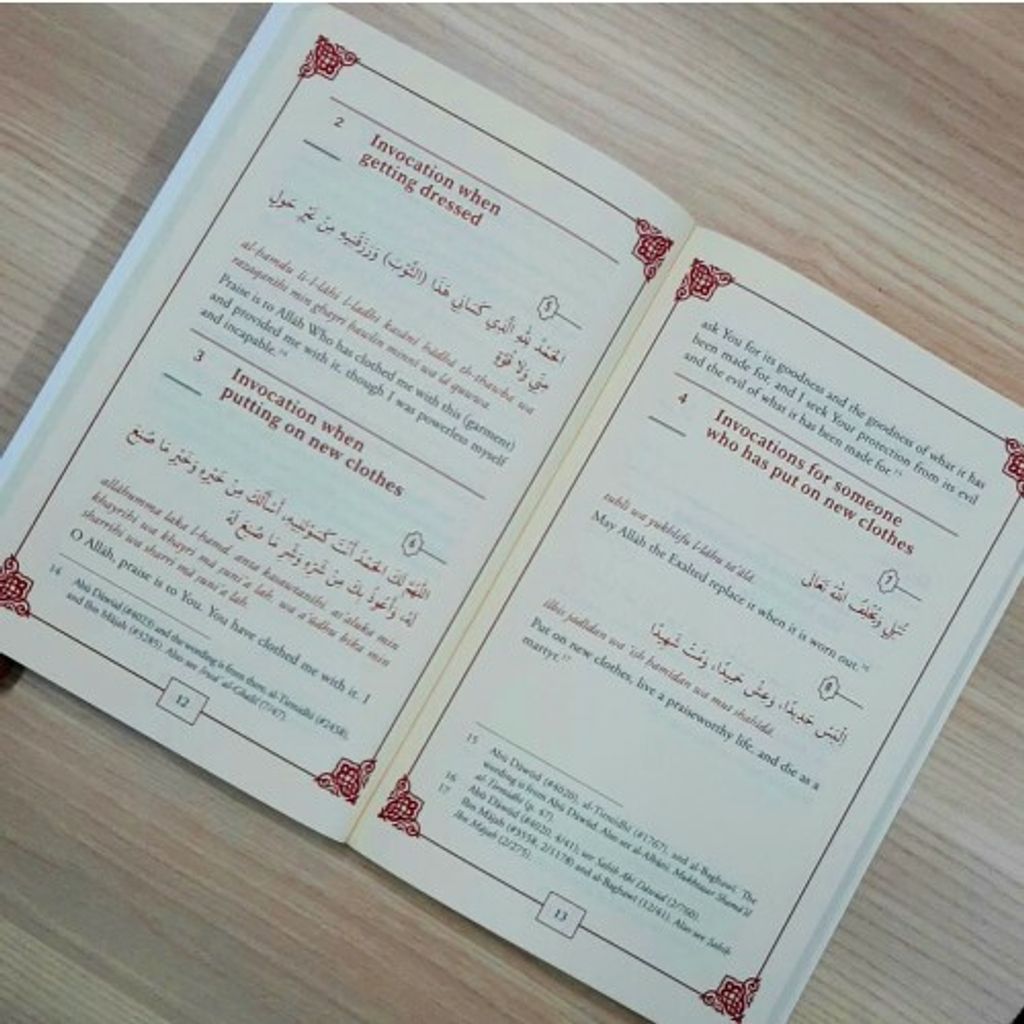 2
Invocation when
getting dressed
5
الْحَمْدُ لِلَّهِ الَّذِي كَسَانِي هَذَا (الثَّوْبَ) وَرَزَقَنِيهِ مِنْ غَيْرِ حَوْلٍ
مِنِّي وَلَا قُوَّةٍ
al-ḥamdu li-l-lāhi l-ladhī kasānī hādhā th-thawba wa
razaqanīhi min ghayri ḥawlin minnī wa lā quwwa.
Praise is to Allāh Who has clothed me with this (garment)
and provided me with it, though I was powerless myself
and incapable.14
3
Invocation when
putting on new clothes
6
اللَّهُمَّ لَكَ الْحَمْدُ أَنْتَ كَسَوْتَنِيهِ، أَسْأَلُكَ مِنْ خَيْرِهِ وَخَيْرِ مَا صُنِعَ
لَهُ، وَأَعُوذُ بِكَ مِنْ شَرِّهِ وَشَرِّ مَا صُنِعَ لَهُ
allāhumma laka l-ḥamd, anta kasawtanīhi, as'aluka min
khayrihi wa khayri mā ṣuni'a lah, wa a'ūdhu bika min
sharrihi wa sharri mā ṣuni'a lah.
O Allāh, praise is to You. You have clothed me with it. I
14 Abū Dāwūd (#4023) and the wording is from them, al-Tirmidhī (#3458),
and Ibn Mājah (#3285). Also see Irwā' al-Ghalīl (7/47).
12
ask You for its goodness and the goodness of what it has
been made for, and I seek Your protection from its evil
and the evil of what it has been made for.15
4
Invocations for someone
who has put on new clothes
7
تُبْلِي وَيُخْلِفُ اللَّهُ تَعَالَى
tublī wa yukhlifu l-lāhu ta'ālā.
May Allāh the Exalted replace it when it is worn out.16
8
الْبَسْ جَدِيدًا، وَعِشْ حَمِيدًا، وَمُتْ شَهِيدًا
ilbis jadīdan wa 'ish ḥamīdan wa mut shahīdā.
Put on new clothes, live a praiseworthy life, and die as a
martyr.17
15 Abū Dāwūd (#4020), al-Tirmidhī (#1767), and al-Baghawī. The
wording is from Abū Dāwūd. Also see al-Albānī, Mukhtaṣar Shamā'il
al-Tirmidhī (p. 47).
16 Abū Dāwūd (#4020, 4/41), see Ṣaḥīḥ Abī Dāwūd (2/760).
17 Ibn Mājah (#3558, 2/1178) and al-Baghawī (12/41). Also see Ṣaḥīḥ
Ibn Mājah (2/275).
13